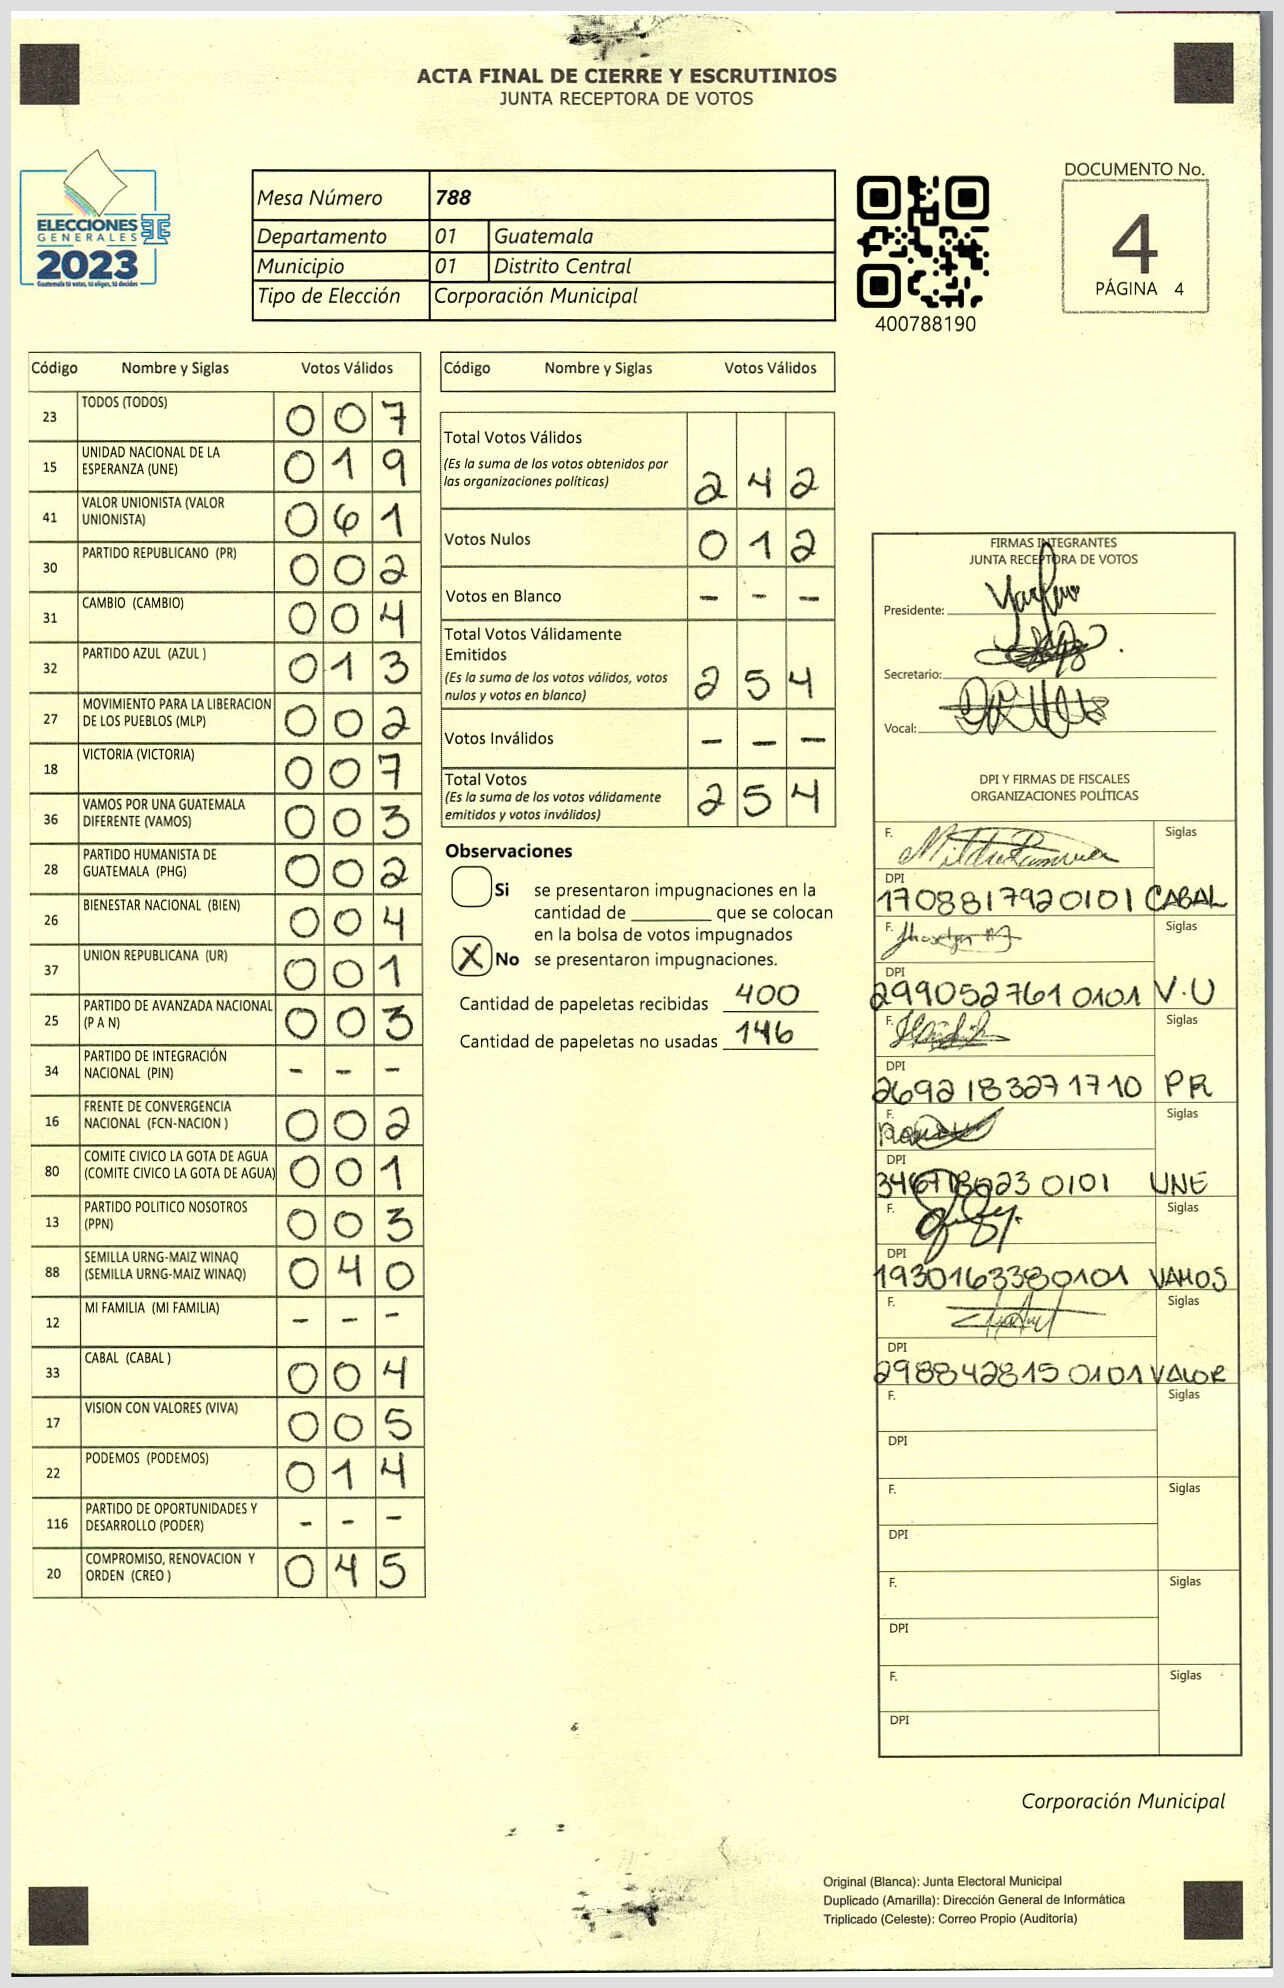 ACTA FINAL DE CIERRE Y ESCRUTINIOS
JUNTA RECEPTORA DE VOTOS
ELECCIONES
GENERALES
2023
Guatemala tú votas, tú eliges, tú decides
Mesa Número 788
Departamento 01 Guatemala
Municipio 01 Distrito Central
Tipo de Elección Corporación Municipal
400788190
DOCUMENTO No.
4
PÁGINA 4
Código Nombre y Siglas Votos Válidos
23 TODOS (TODOS) 007
15 UNIDAD NACIONAL DE LA ESPERANZA (UNE) 019
41 VALOR UNIONISTA (VALOR UNIONISTA) 061
30 PARTIDO REPUBLICANO (PR) 002
31 CAMBIO (CAMBIO) 004
32 PARTIDO AZUL (AZUL ) 013
27 MOVIMIENTO PARA LA LIBERACION DE LOS PUEBLOS (MLP) 002
18 VICTORIA (VICTORIA) 007
36 VAMOS POR UNA GUATEMALA DIFERENTE (VAMOS) 003
28 PARTIDO HUMANISTA DE GUATEMALA (PHG) 002
26 BIENESTAR NACIONAL (BIEN) 004
37 UNION REPUBLICANA (UR) 001
25 PARTIDO DE AVANZADA NACIONAL (P A N) 003
34 PARTIDO DE INTEGRACIÓN NACIONAL (PIN) - - -
16 FRENTE DE CONVERGENCIA NACIONAL (FCN-NACION ) 002
80 COMITE CIVICO LA GOTA DE AGUA (COMITE CIVICO LA GOTA DE AGUA) 001
13 PARTIDO POLITICO NOSOTROS (PPN) 003
88 SEMILLA URNG-MAIZ WINAQ (SEMILLA URNG-MAIZ WINAQ) 040
12 MI FAMILIA (MI FAMILIA) - - -
33 CABAL (CABAL ) 004
17 VISION CON VALORES (VIVA) 005
22 PODEMOS (PODEMOS) 014
116 PARTIDO DE OPORTUNIDADES Y DESARROLLO (PODER) - - -
20 COMPROMISO, RENOVACION Y ORDEN (CREO ) 045
Código Nombre y Siglas Votos Válidos
Total Votos Válidos
(Es la suma de los votos obtenidos por las organizaciones políticas) 242
Votos Nulos 012
Votos en Blanco - - -
Total Votos Válidamente Emitidos
(Es la suma de los votos válidos, votos nulos y votos en blanco) 254
Votos Inválidos - - -
Total Votos
(Es la suma de los votos válidamente emitidos y votos inválidos) 254
Observaciones
Si se presentaron impugnaciones en la
cantidad de ________ que se colocan
en la bolsa de votos impugnados
X No se presentaron impugnaciones.
Cantidad de papeletas recibidas 400
Cantidad de papeletas no usadas 146
FIRMAS INTEGRANTES
JUNTA RECEPTORA DE VOTOS
Presidente:
Secretario:
Vocal:
DPI Y FIRMAS DE FISCALES
ORGANIZACIONES POLÍTICAS
F. Siglas
DPI
1708817920101 CABAL
F. Siglas
DPI
2990527610101 V.U
F. Siglas
DPI
2692183271710 PR
F. Siglas
DPI
UNE
F. Siglas
DPI
1930163380101 VAMOS
F. Siglas
DPI
2988428150101 VALOR
F. Siglas
DPI
F. Siglas
DPI
F. Siglas
DPI
F. Siglas
DPI
Corporación Municipal
Original (Blanca): Junta Electoral Municipal
Duplicado (Amarilla): Dirección General de Informática
Triplicado (Celeste): Correo Propio (Auditoría)